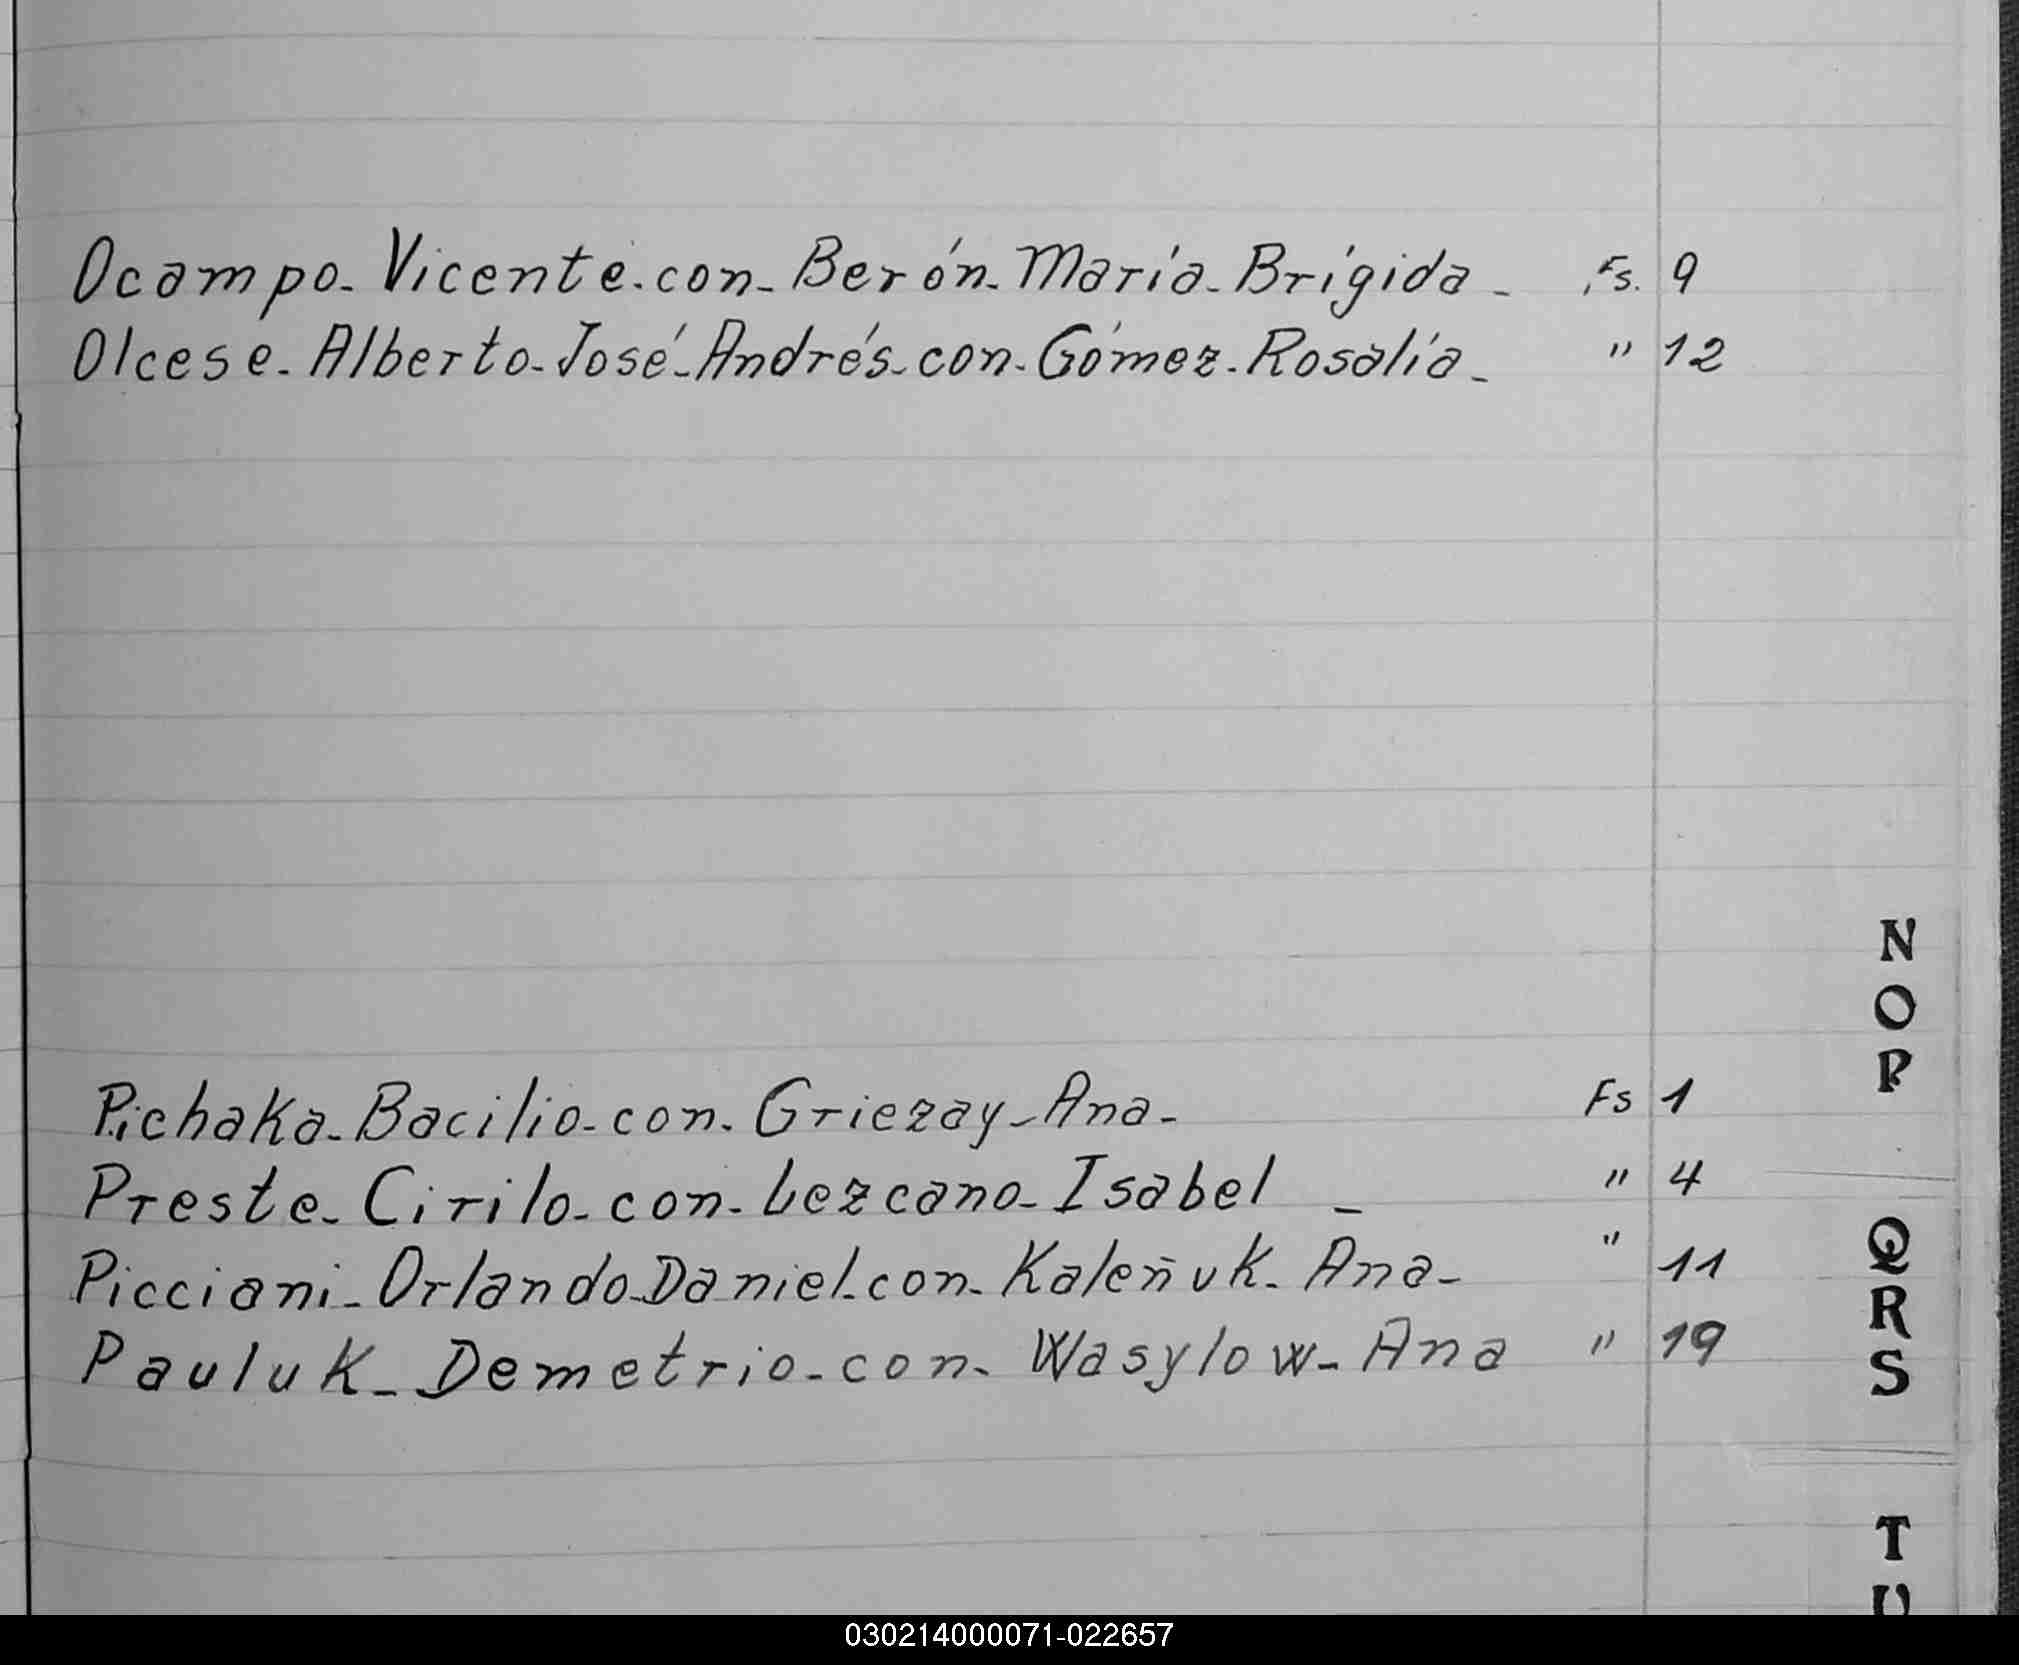 Ocampo_ Vicente.con_ Berón_María_Brígida_ Fs. 9
Olcese_Alberto_José_Andrés_con_Gómez_Rosalía_ " 12
N
O
P
Pichaka_Bacilio_con_Griezay_Ana_ Fs 1
Preste_Cirilo_con_Lezcano_Isabel _ " 4
Picciani_Orlando_Daniel_con_Kaleñuk_Ana_ " 11
Pauluk_Demetrio_con_Wasylow_Ana " 19
Q
R
S
T
U
030214000071-022657